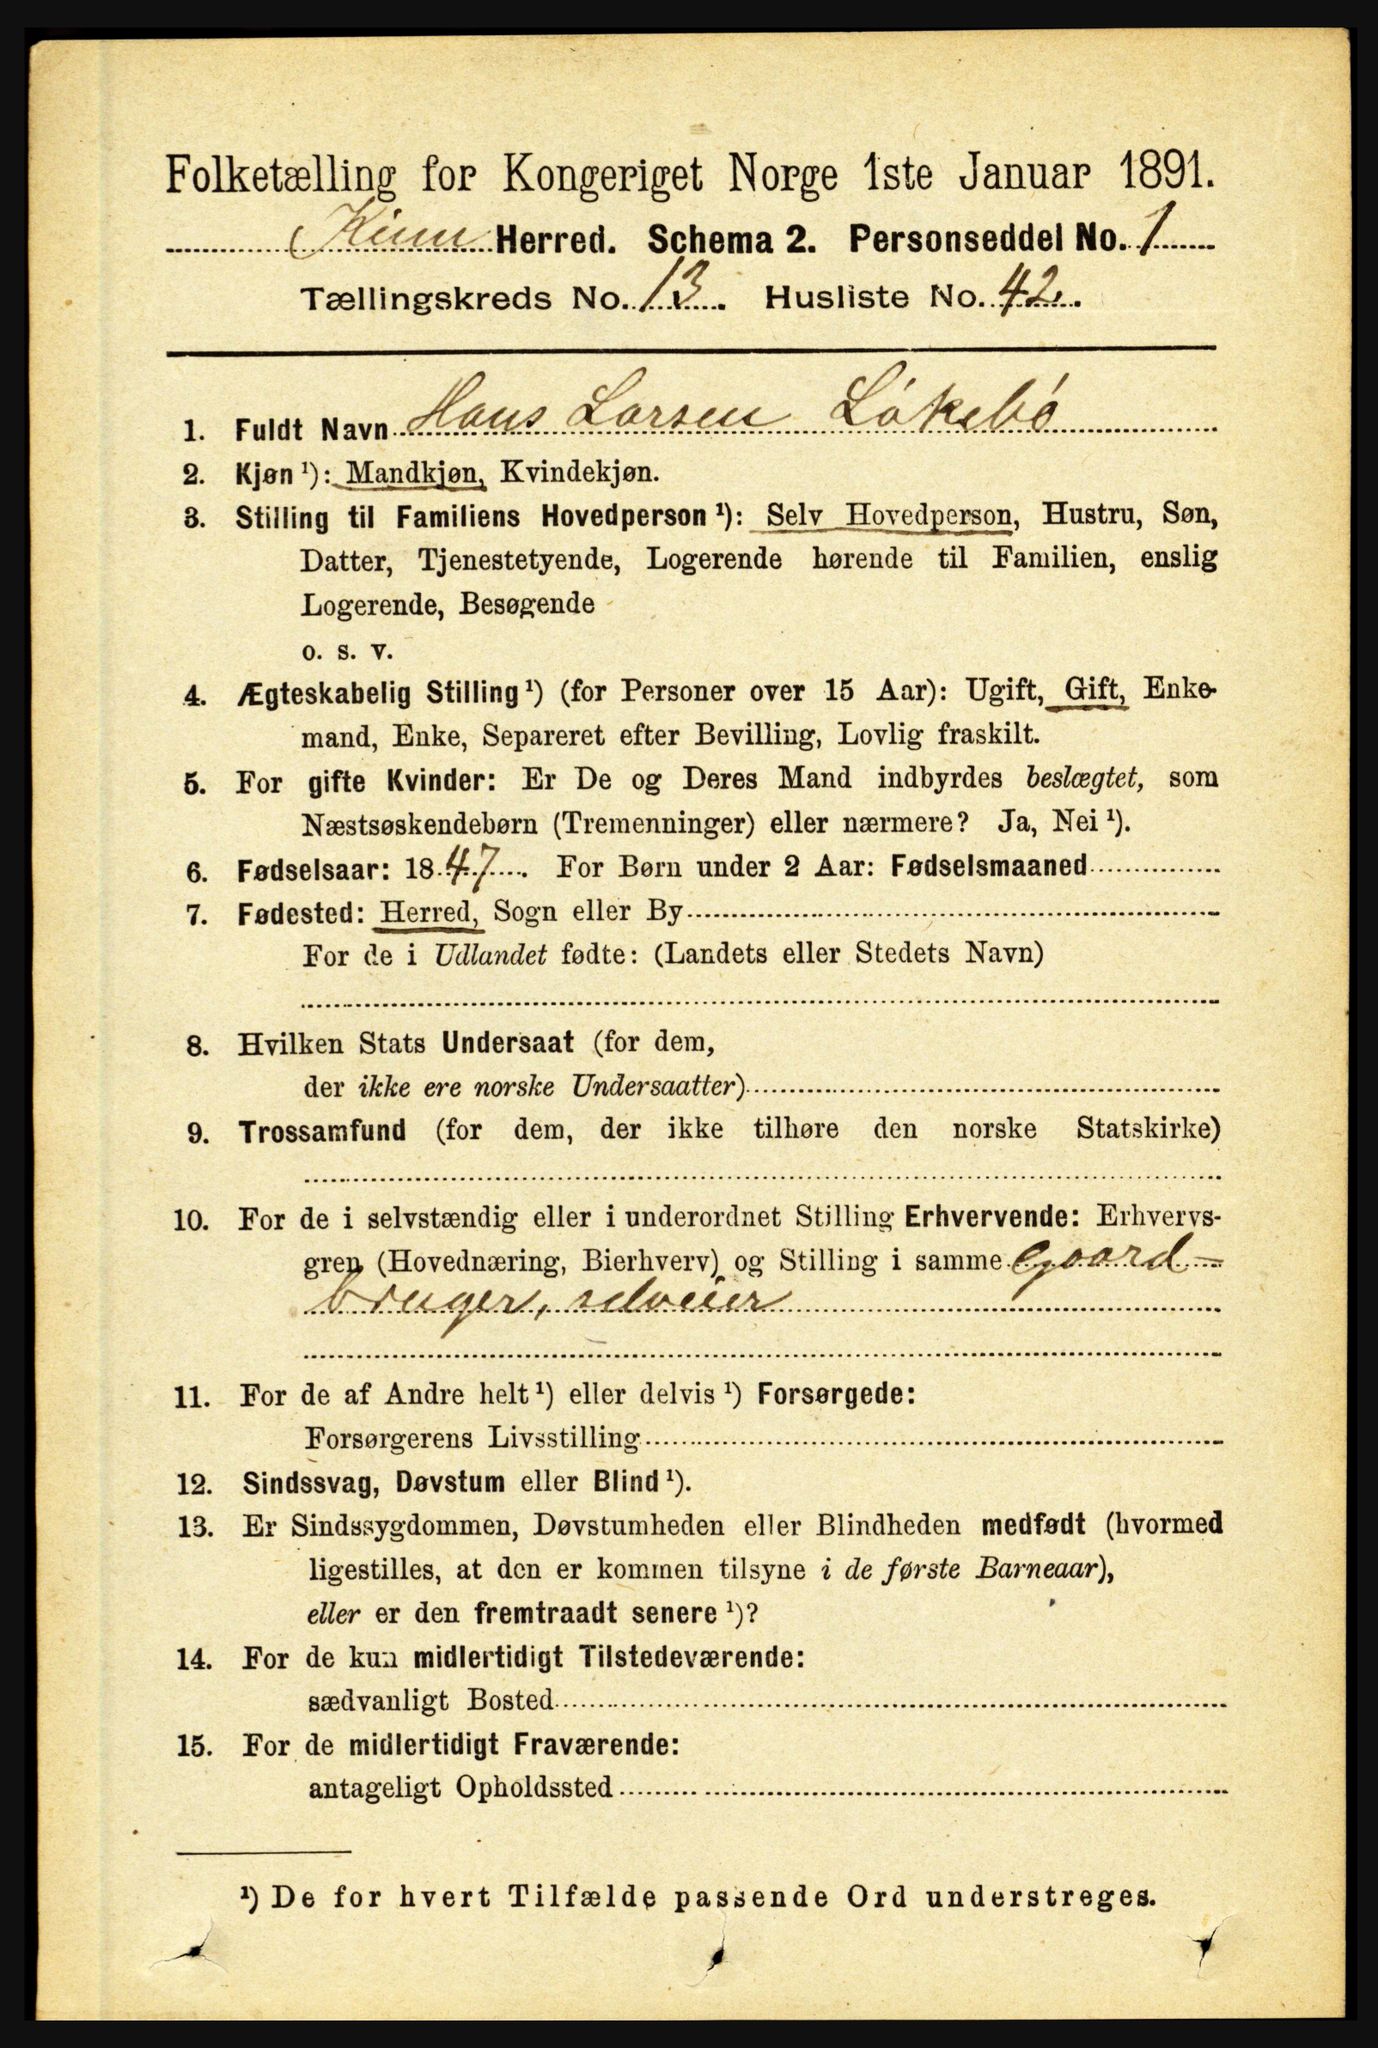 Folketælling for Kongeriget Norge 1ste Januar 1891.
Kinn Herred. Schema 2. Personseddel No. 1
Tællingskreds No. 13. Husliste No. 42.
1. Fuldt Navn Hans Larsen Løkebø
2. Kjøn ¹): Mandkjøn, Kvindekjøn.
3. Stilling til Familiens Hovedperson ¹): Selv Hovedperson, Hustru, Søn,
Datter, Tjenestetyende, Logerende hørende til Familien, enslig
Logerende, Besøgende
o. s. v.
4. Ægteskabelig Stilling ¹) (for Personer over 15 Aar): Ugift, Gift, Enke-
mand, Enke, Separeret efter Bevilling, Lovlig fraskilt.
5. For gifte Kvinder: Er De og Deres Mand indbyrdes beslægtet, som
Næstsøskendebørn (Tremenninger) eller nærmere? Ja, Nei ¹).
6. Fødselsaar: 1847. For Børn under 2 Aar: Fødselsmaaned
7. Fødested: Herred, Sogn eller By
For de i Udlandet fødte: (Landets eller Stedets Navn)
8. Hvilken Stats Undersaat (for dem,
der ikke ere norske Undersaatter)
9. Trossamfund (for dem, der ikke tilhøre den norske Statskirke)
10. For de i selvstændig eller i underordnet Stilling Erhvervende: Erhvervs-
gren (Hovednæring, Bierhverv) og Stilling i samme Gaard-
bruger, selveier
11. For de af Andre helt ¹) eller delvis ¹) Forsørgede:
Forsørgerens Livsstilling
12. Sindssvag, Døvstum eller Blind ¹).
13. Er Sindssygdommen, Døvstumheden eller Blindheden medfødt (hvormed
ligestilles, at den er kommen tilsyne i de første Barneaar),
eller er den fremtraadt senere ¹)?
14. For de kun midlertidigt Tilstedeværende:
sædvanligt Bosted
15. For de midlertidigt Fraværende:
antageligt Opholdssted
¹) De for hvert Tilfælde passende Ord understreges.